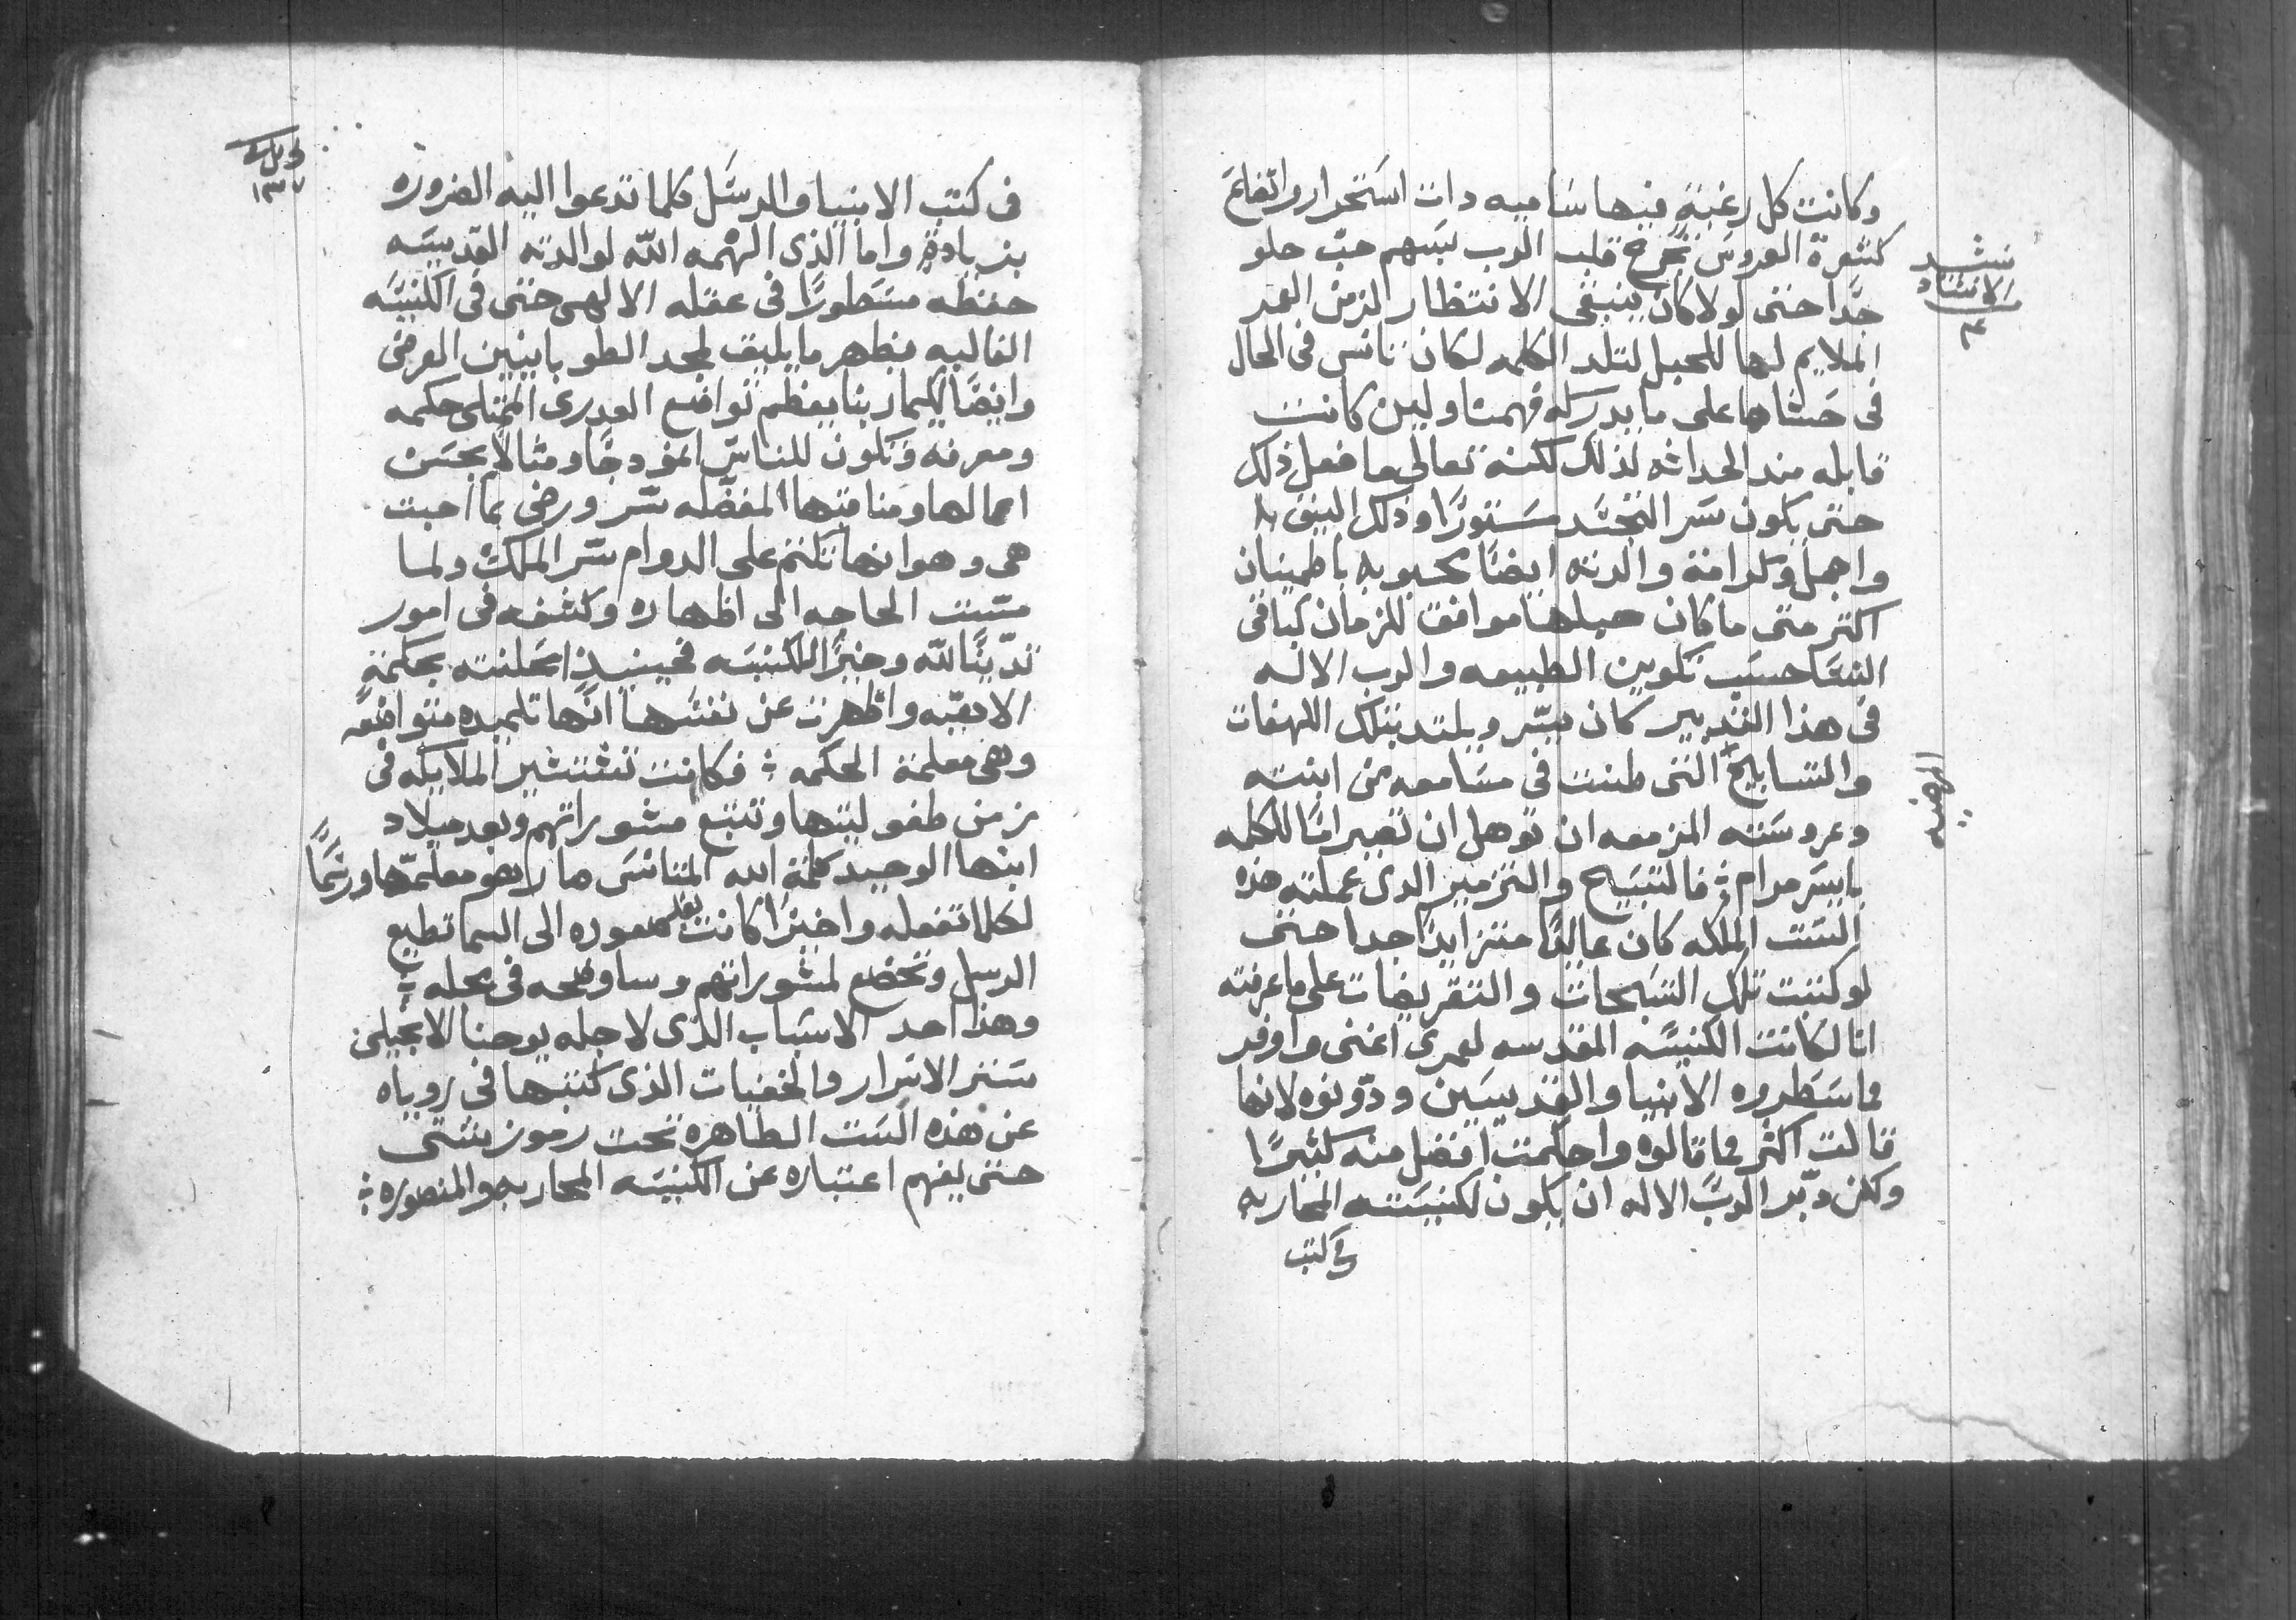 وكانت كل رغبة فيها ساميه دات استحرار واتفاع
كشعرة العروس تجرح قلب الرب بسهم حبّ حلو
جدًا حتى لولا كان ينبغي الانتظار الزمن العمر
الملايم لها للحبل لتلد الكلمه لكان تانس في الحال
في حشاها على ما يدركه فهمنا ولين كانت
قابله مند الحداثه لذلك لكنه تعالى ما فعل ذلك
حتى يكون سر التجسّد مستورًا وذلك اليق به
واجمل وكرامة والدته ايضًا محبوبه باطمينان
اكتر متى ما كان حبلها موافق للزمان كباقي
النسا حسب تكوين الطبيعه والرب الاله
في هذا التدبير كان يسّر ويلتد بتلك اللهفات
والتسابيح التى طنت في مسامعه من ابنته
المرضيه
وعروسته المزمعه ان توهل ان تصير امًا للكلمه
بايسر مرام ÷ فالتسبيح والتزمير الدى عملته هذه
الست الملكه كان عاليًا متزايدًا جدا حتى
لو كتبت تلك التسبحات والتقريضات على ما عرفته
انا لكانت الكنيسه المقدسه لعمرى اغنى واوفر
مما سطروه الانبيا والقديسين ودوّنوه لانها
قالت اكثر مما قالوه واحكمت افضل منه كثيرًا
ولكن دبّر الربّ الاله ان يكون لكنيسته المحاربه
في كتب
نشيد
الانشاد
٤
١٣٧
في كتب الانبيا والرسل كلما تدعوا اليه الضروره
بزيادة واما الذى الهمه اللّه لوالدته القديسه
حفظه مسطورًا في عقله الالهى حتى في الكنيسه
الغالبه يظهر ما يليق لمجد الطوباويين العرضى
وايضًا لكيما ربنا يعظم تواضع العدرى الممتلى حكمه
ومعرفه وتكون للناس انمودجًا ومثالًا بحسن
اعمالها ومناقبها المفضّله سّر ورضى بما احبت
هى وهو انها تكتم على الدوام سّر الملك ولما
مسّت الحاجه الى اظهاره وكشفه في امور
تدّينًا للّه وخيرًا للكنيسه فحينيذ اعلنته بحكمة
الاهيّه واظهرت عن نفسها انّها تلميده متواضعه
وهى معلمة الحكمه ÷ فكانت تستشير الملايكه في
زمن طفوليتها وتتبع مشوراتهم وبعد ميلاد
ابنها الوحيد كلمة الله المتانس صار هو معلمّها ورسمًا
لكلما تفعله واخيرًا كانت بعد صعوده الى السما تطيع
الرسل وتخضع لمشوراتهم وساوضحه في محله ÷
وهذا احد الاسباب الذى لاجله يوحنا الانجيلى
ستر الاسرار والخفيات الذى كتبها في روياه
عن هذه الست الطاهره تحت رموز شتى
حتى يفهم اعتباره عن الكنيسه المحاربه والمنصوره ÷